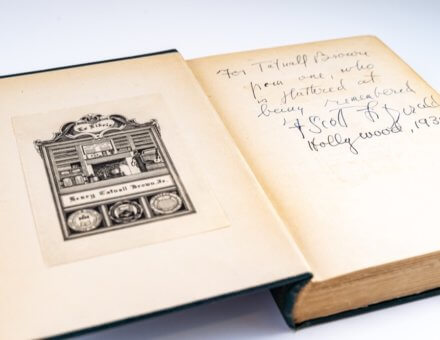 Ex Libris
Henry Tatnall Brown Jr.
For Tatnall Brown
from one, who
is flattered at
being remembered
F Scott Fitzgerald
Hollywood, 193